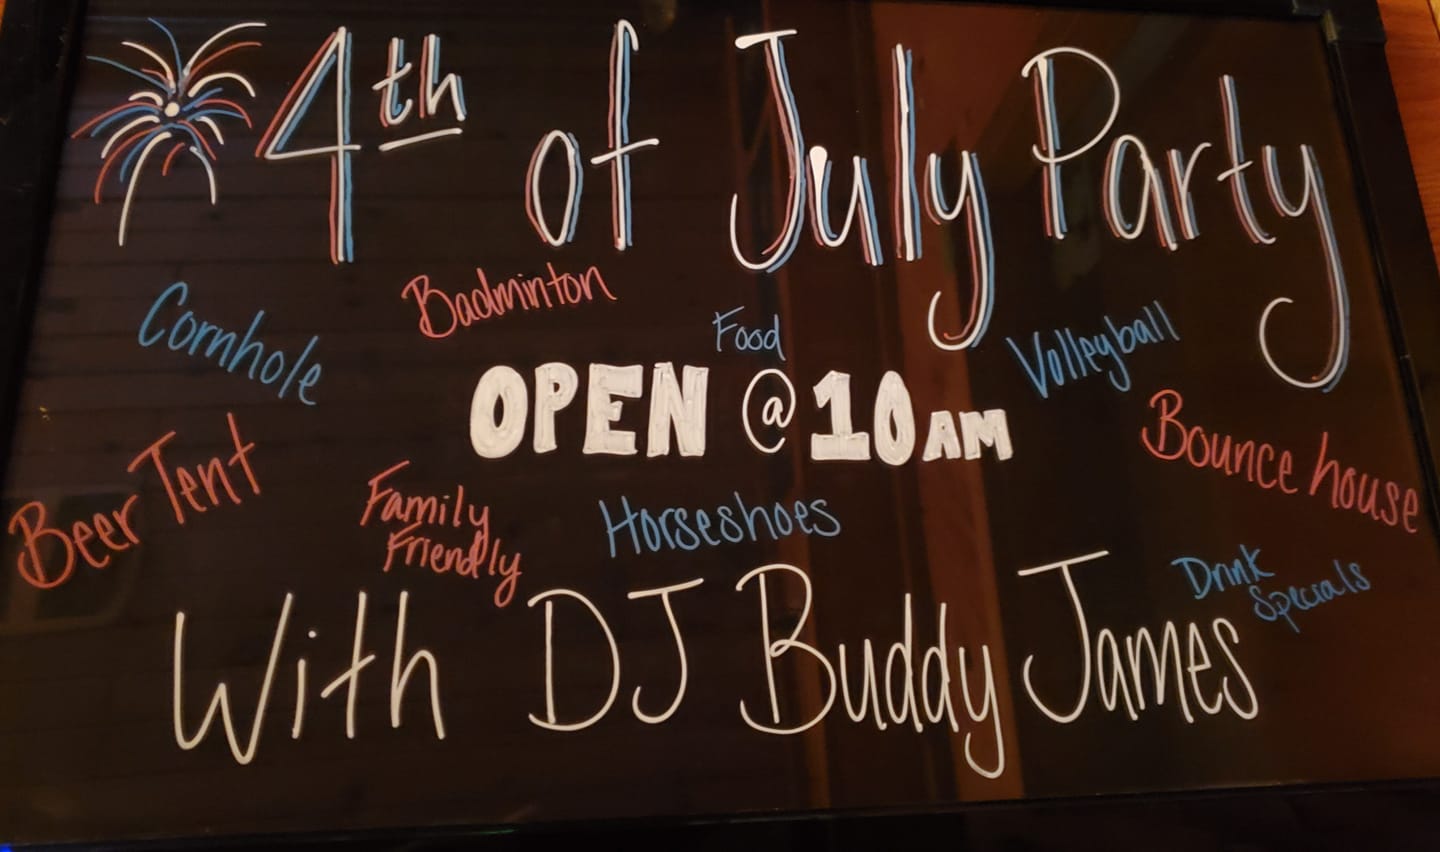 4th of July Party
Badminton
Cornhole
Food
Volleyball
OPEN @ 10AM
Bounce house
Beer Tent
Family
Friendly
Horseshoes
Drink
Specials
With DJ Buddy James